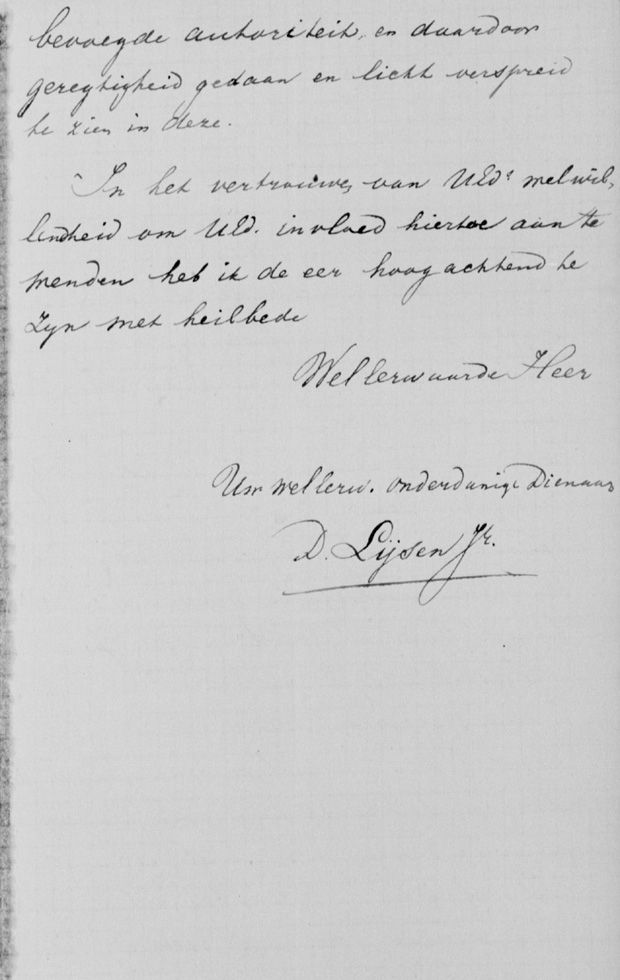 bevoegde autoriteit, en daardoor
geregtigheid gedaan en licht verspreid
te zien in deze.
In het vertrouwen van UEds welwil,
lendheid om UEd. invloed hiertoe aan te
wenden heb ik de eer hoogachtend te
zyn met heilbede
Wellerwaarde Heer
Uw wellerw. onderdanige Dienaar
D. Lijsen Jr.